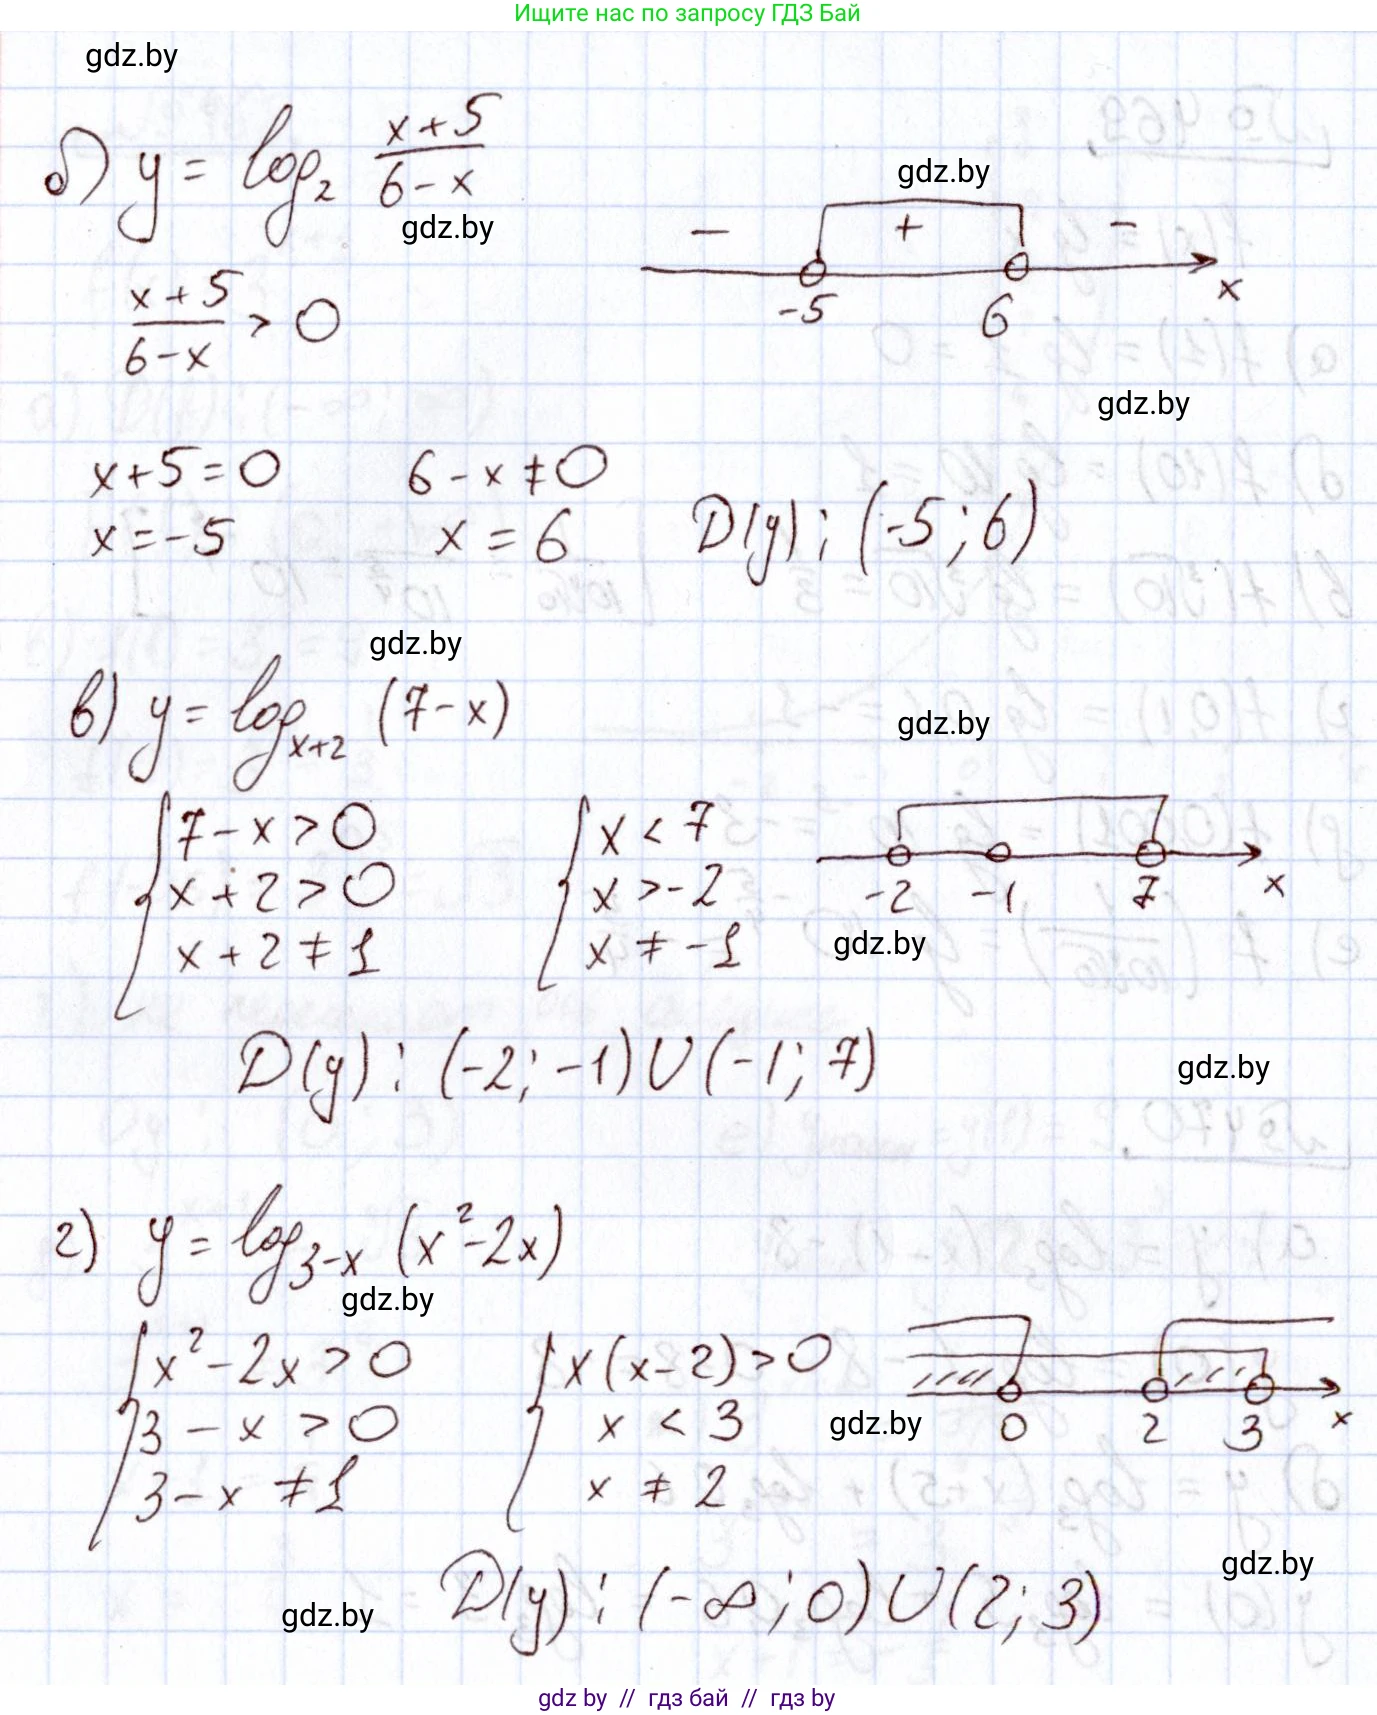 Ищите нас по запросу ГДЗ Бай
gdz.by
б) y = log₂ (x+5)/(6-x)
gdz.by
gdz.by
- + -
-5 6 x
(x+5)/(6-x) > 0
gdz.by
x+5=0 6-x≠0
x=-5 x=6 D(y): (-5; 6)
gdz.by
в) y = log_{x+2} (7-x)
gdz.by
7-x>0 x<7
x+2>0 x>-2
x+2≠1 x≠-1
-2 -1 7 x
gdz.by
D(y): (-2; -1)∪(-1; 7)
gdz.by
г) y = log_{3-x} (x²-2x)
gdz.by
x²-2x>0 x(x-2)>0
3-x>0 x<3
3-x≠1 x≠2
0 2 3 x
gdz.by
D(y): (-∞; 0)∪(2; 3)
gdz.by
gdz.by
gdz by // гдз бай // гдз by